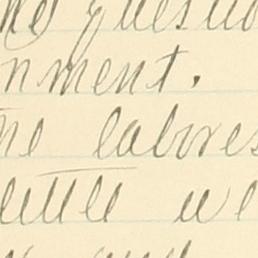 he questio
nment.
he labores
little we